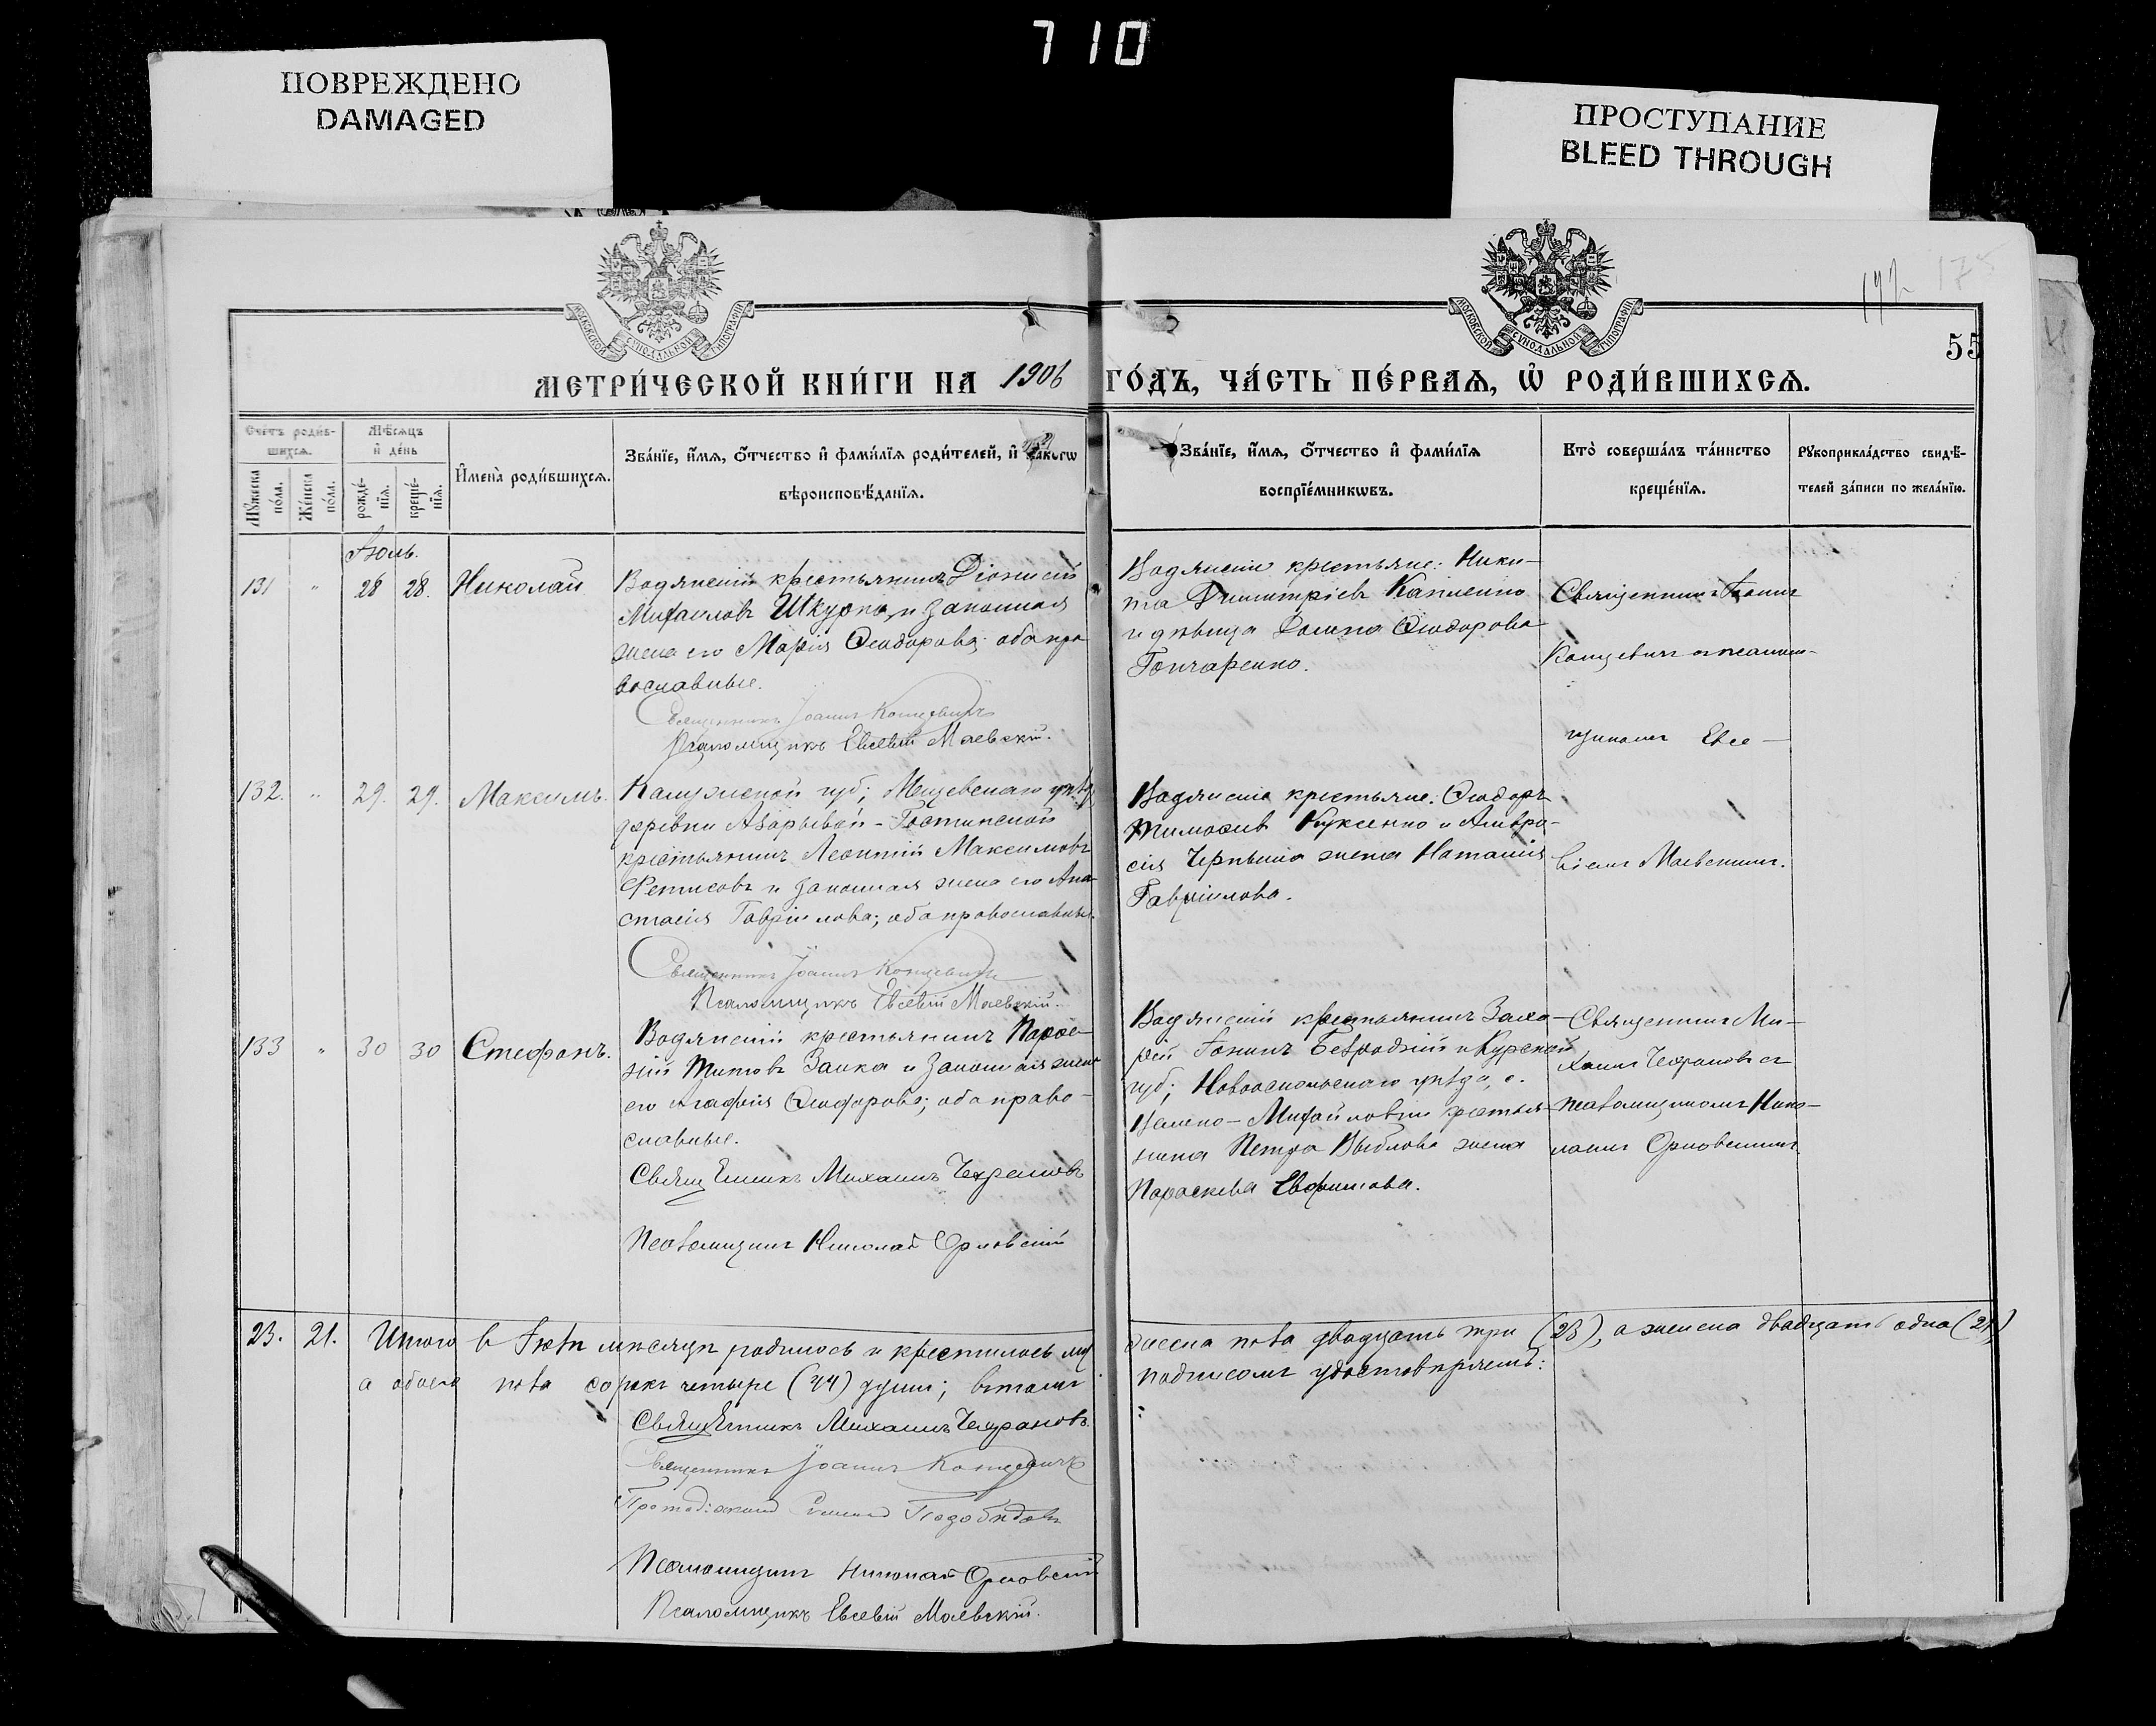 710
ПОВРЕЖДЕНО
DAMAGED
ПРОСТУПАНИЕ
BLEED THROUGH
МОСКОВСКОЙ СѴНОДАЛЬНОЙ ТИПОГРАФІИ
МОСКОВСКОЙ СѴНОДАЛЬНОЙ ТИПОГРАФІИ
55
МЕТРИ́ЧЕСКОЙ КНИ́ГИ НА 1906 ГО́ДЪ, ЧА́СТЬ ПЕ́РВАѦ, Ѡ҆ РОДИ́ВШИХСѦ.
Сче́тъ роди́в-
шихсѧ.
Мꙋ́жеска по́ла.
Же́нска по́ла.
Мѣ́сѧцъ
и҆ де́нь
рожде́-
нїѧ.
креще́-
нїѧ.
И҆мена̀ роди́вшихсѧ.
Зва́нїе, и҆́мѧ, ѻ҆́тчество и҆ фами́лїѧ роди́телей, и҆ како́гѡ
вѣроисповѣ́данїѧ.
Зва́нїе, и҆́мѧ, ѻ҆́тчество и҆ фами́лїѧ
воспрїе́мникѡвъ.
Кто̀ соверша́лъ та́инство
креще́нїѧ.
Рꙋкоприкла́дство свидѣ́-
телей за́писи по жела́нїю.
Іюль.
131 " 28 28. Николай
Водянскій крестьянинъ Діонисій
Михаиловъ Шкурко, и законная
жена его Марія Ѳеодорова; оба пра
вославные.
Священникъ Іоаннъ Концевичъ
Псаломщикъ Евсевій Маевскій.
Водянскіе крестьяне: Ники-
та Димитріевъ
и дѣвица Ѳеодорова
Гончаренко.
Священникъ Іоаннъ
Концевичъ съ псалом-
щикомъ Евсе-
віемъ Маевскимъ.
132. " 29. 29. Максимъ.
Калужской губ; Мещевскаго уѣзда
деревни
крестьянинъ Леонтій Максимовъ
Фетисовъ и законная жена его Ана-
стасія Гавріилова; оба православные.
Священникъ Іоаннъ Концевичъ
Псаломщикъ Евсевій Маевскій.
Водянскіе крестьяне: Ѳеодоръ
Тимоѳеевъ Куксенко и Амвро-
сія жена Наталія
Гавріилова.
133 " 30 30 Стефанъ.
Водянскій крестьянинъ
Титовъ Заика и законная жена
его Агафія Ѳеодорова; оба право-
славные.
Священникъ Михаилъ Чефрановъ
Псаломщикъ Николай Орловскій
Водянскій крестьянинъ Заха-
рій и Курской
губ; Новооскольскаго уѣзда, с.
Михайловки крестья-
нина Петра жена
Параскева Евфимова.
Священникъ Ми-
хаилъ Чефрановъ съ
псаломщикомъ Нико-
лаемъ Орловскимъ
23. 21. Итого въ Іюлѣ мѣсяцѣ родилось и крестилось му
жеска пола двадцать три (23), а женска двадцать одна (21)
а обоего пола сорокъ четыре (44) души; въ томъ
подписомъ удостовѣряемъ:
Священникъ Михаилъ Чефрановъ.
Священникъ Іоаннъ Концевичъ
Протодіаконъ
Псаломщикъ Николай Орловскій
Псаломщикъ Евсевій Маевскій.